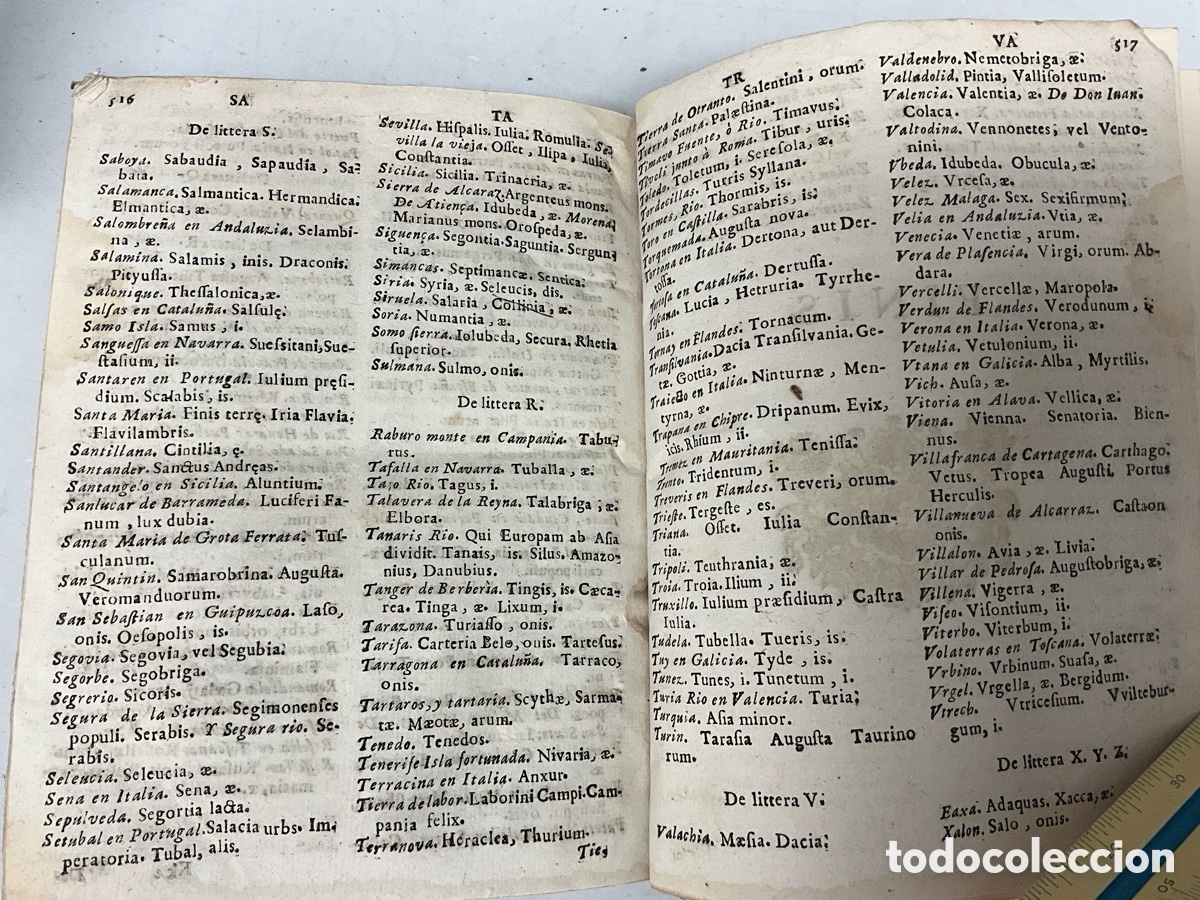 516 SA
De littera S.
Saboya. Sabaudia, Sapaudia, Sa-
bata.
Salamanca. Salmantica. Hermandica.
Elmantica, æ.
Salombreña en Andaluzia. Selambi-
na, æ.
Salamina. Salamis, inis. Draconis.
Pityussa.
Salonique. Thessalonica, æ.
Salsas en Cataluña. Salsulę.
Samo Isla. Samus, i.
Sanguessa en Navarra. Suessitani, Sue-
stasium, ii.
Santaren en Portugal. Iulium pręsi-
dium. Scalabis, is.
Santa Maria. Finis terrę. Iria Flavia.
Flavilambris.
Santillana. Cintilia, ę.
Santander. Sanctus Andręas.
Santangelo en Sicilia. Aluntium.
Sanlucar de Barrameda. Luciferi Fa-
num, lux dubia.
Santa Maria de Grota Ferrata. Tus-
culanum.
San Quintin. Samarobrina. Augusta.
Veromanduorum.
San Sebastian en Guipuzcoa. Laso,
onis. Oesopolis, is.
Segovia. Segovia, vel Segubia.
Segorbe. Segobriga.
Segrerio. Sicoris.
Segura de la Sierra. Segimonenses
populi. Serabis. Y Segura rio. Se-
rabis.
Seleucia. Seleucia, æ.
Sena en Italia. Sena, æ.
Sepulveda. Segortia lacta.
Setubal en Portugal. Salacia urbs. Im-
peratoria. Tubal, alis.
TA
Sevilla. Hispalis. Iulia. Romulia. Se-
villa la vieja. Osset, Ilipa, Iulia,
Constantia.
Sicilia. Sicilia. Trinacria, æ.
Sierra de Alcaraz. Argenteus mons.
De Atiença. Idubeda, æ. Morena,
Marianus mons. Orospeda, æ.
Siguença. Segontia. Saguntia. Sergun-
tia, æ.
Simancas. Septimancæ. Sentica.
Siria. Syria, æ. Seleucis, dis.
Siruela. Salaria, Collinia, æ.
Soria. Numantia, æ.
Somo sierra. Iolubeda, Secura. Rhetia
superior.
Sulmana. Sulmo, onis.
De littera R.
Raburo monte en Campania. Tabu-
rus.
Tafalla en Navarra. Tuballa, æ.
Tajo Rio. Tagus, i.
Talavera de la Reyna. Talabriga, æ.
Elbora.
Tanaris Rio. Qui Europam ab Asia
dividit. Tanais, is. Silus, Amazo-
nius, Danubius.
Tanger de Berberia. Tingis, is. Cæca-
rea. Tinga, æ. Lixum, i.
Tarazona. Turiasso, onis.
Tarifa. Carteria Bele, onis. Tartesus.
Tarragona en Cataluña. Tarraco,
onis.
Tartaros, y tartaria. Scythæ, Sarma-
tæ. Mæotæ, arum.
Tenedo. Tenedos.
Tenerife Isla fortunada. Nivaria, æ.
Terracina en Italia. Anxur.
Tierra de labor. Laborini Campi. Cam-
pania felix.
Terranova. Heraclea, Thurium.
Tier
TR
Tierra de Otranto. Salentini, orum.
Tierra Santa. Palæstina.
Timavo Fuente, ò Rio. Timavus.
Tiveli junto à Roma. Tibur, uris.
Toledo. Toletum, i. Seresola, æ.
Tordecillas. Turris Syllana.
Tormes, Rio. Thormis, is.
Toro en Castilla. Sarabris, is.
Torquemada. Augusta nova.
Tortona en Italia. Dertona, aut Der-
tossa.
Tortosa en Cataluña. Dertussa.
Toscana. Lucia, Hetruria. Tyrrhe-
nia.
Tornay en Flandes. Tornacum.
Transilvania. Dacia Transilvania. Ge-
tæ. Gottia, æ.
Traiecto en Italia. Ninturnæ, Men-
tyrna, æ.
Trapana en Chipre. Dripanum. Evix,
icis. Rhium, ii.
Tremez en Mauritania. Tenissa.
Trento. Tridentum, i.
Treveris en Flandes. Treveri, orum.
Trieste. Tergeste, es.
Triana. Osset. Iulia Constan-
tia.
Tripoli. Teuthrania, æ.
Troia. Troia. Ilium, ii.
Truxillo. Iulium præsidium, Castra
Iulia.
Tudela. Tubella. Tueris, is.
Tuy en Galicia. Tyde, is.
Tunez. Tunes, i. Tunetum, i.
Turia Rio en Valencia. Turia.
Turquia. Asia minor.
Turin. Tarasia Augusta Taurino
rum.
De littera V.
Valachia. Mæsia. Dacia.
VA 517
Valdenebro. Nemetobriga, æ.
Valladolid. Pintia, Vallisoletum.
Valencia. Valentia, æ. De Don Iuan.
Colaca.
Valtodina. Vennonetes, vel Vento-
nini.
Vbeda. Idubeda. Obucula, æ.
Velez. Vrcesa, æ.
Velez Malaga. Sex. Sexifirmum.
Velia en Andaluzia. Vtia, æ.
Venecia. Venetiæ, arum.
Vera de Plasencia. Virgi, orum. Ab-
dara.
Vercelli. Vercellæ, Maropola.
Verdun de Flandes. Verodunum, i.
Verona en Italia. Verona, æ.
Vetulia. Vetulonium, ii.
Vtana en Galicia. Alba, Myrtilis.
Vich. Ausa, æ.
Vitoria en Alava. Vellica, æ.
Viena. Vienna. Senatoria. Bien-
nus.
Villafranca de Cartagena. Carthago.
Vetus. Tropea Augusti. Portus
Herculis.
Villanueva de Alcarraz. Castaon
onis.
Villalon. Avia, æ. Livia.
Villar de Pedrosa. Augustobriga, æ.
Villena. Vigerra, æ.
Viseo. Visontium, ii.
Viterbo. Viterbum, i.
Volaterras en Toscana. Volaterræ.
Vrbino. Vrbinum. Suasa, æ.
Vrgel. Vrgella, æ. Bergidum.
Vtrech. Vtricesium. Vviltebur-
gum, i.
De littera X. Y. Z.
Eaxa. Adaquas. Xacca, æ.
Xalon. Salo, onis.
30
50
todocoleccion